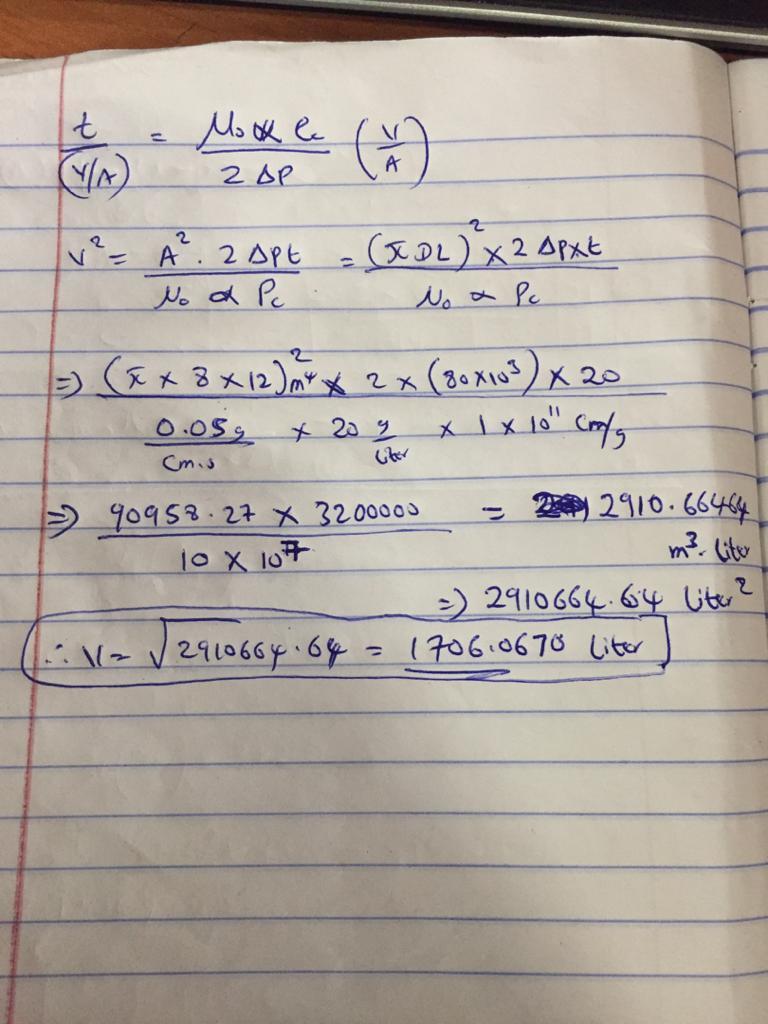 t/(V/A) = μ₀ α ρc/2 ΔP (V/A)
V² = A² . 2 ΔPt/μ₀ α ρc = (πDL)² × 2 ΔP×t/μ₀ α ρc
=> (π × 8 × 12)² m⁴ × 2 × (80×10³) × 20/0.05 g/cm.s × 20 g/liter × 1 × 10¹¹ cm/g
=> 90958.27 × 3200000/10 × 10⁷ = 2910.66464 m³. liter
=) 2910664.64 liter²
∴ V = √2910664.64 = 1706.0670 liter